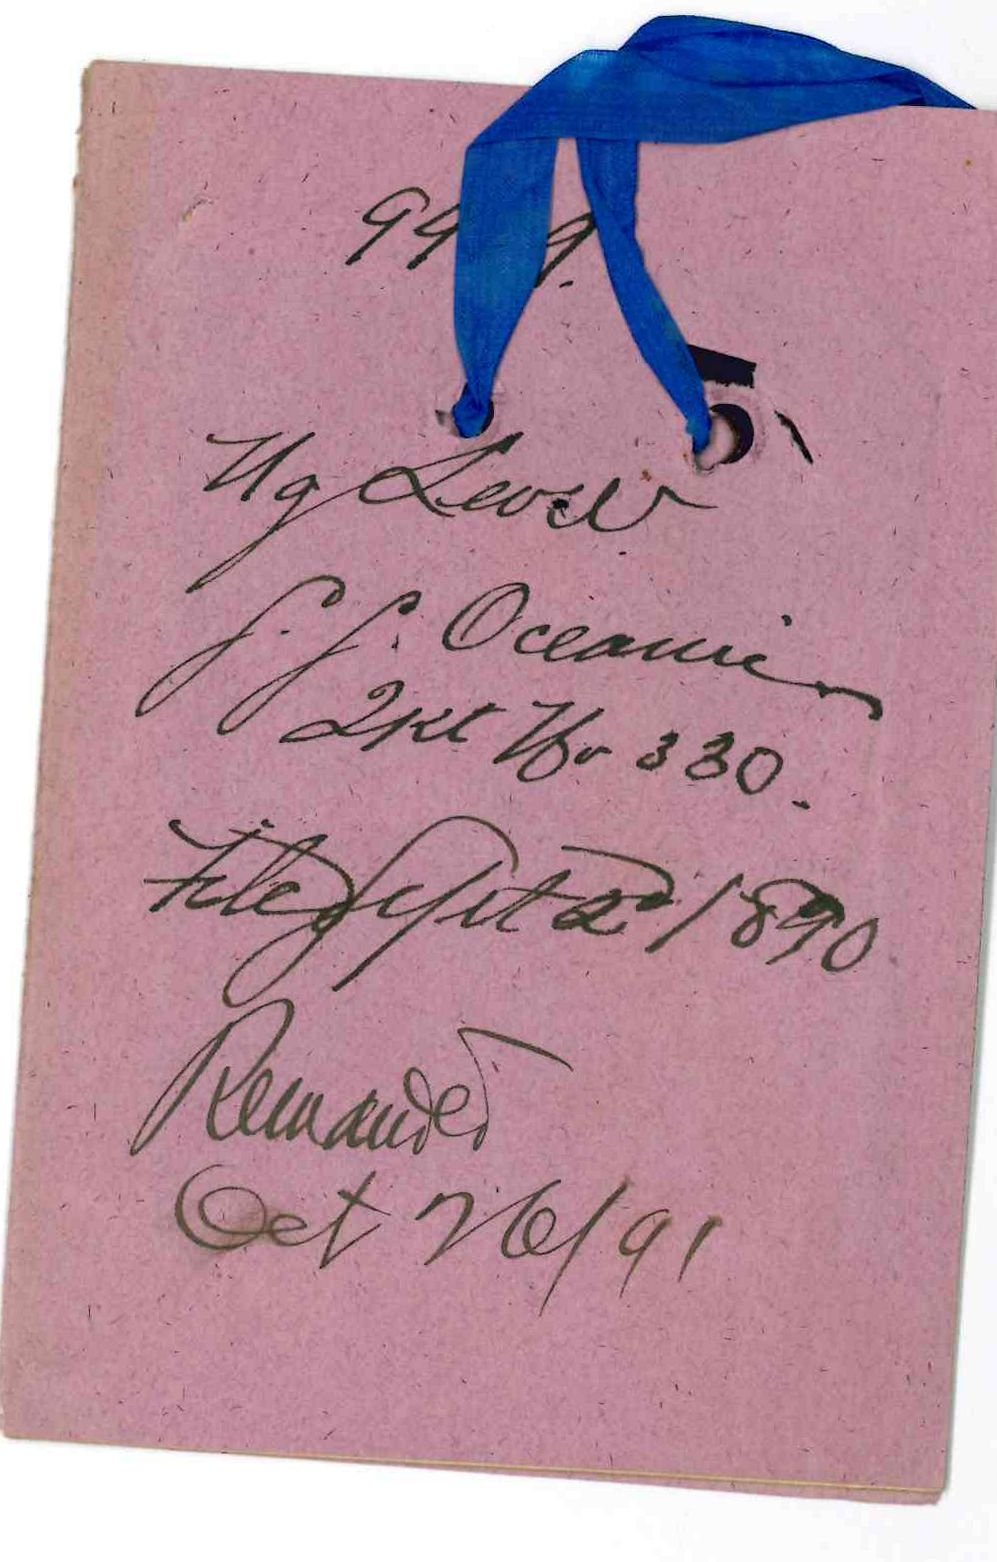 Ng
S. S. Oceanic
2kt No 330.
Filed Sept 2d 1890
Remanded
Oct 26/91